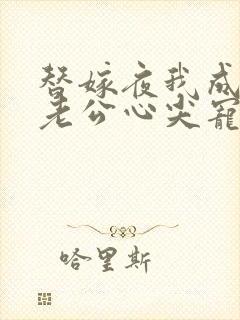 替嫁夜我成
老公心尖宠
哈里斯